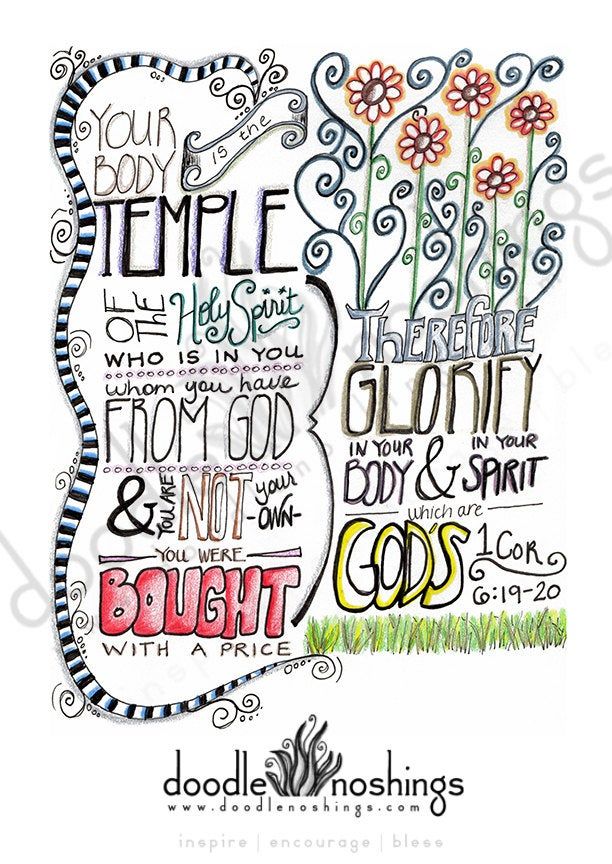 YOUR
BODY
is the
TEMPLE
OF THE Holy Spirit
WHO IS IN YOU
whom you have
FROM GOD
& YOU ARE NOT your
-OWN-
YOU WERE
BOUGHT
WITH A PRICE
THEREFORE
GLORIFY
IN YOUR BODY & IN YOUR SPIRIT
which are
GOD'S
1 COR
6:19-20
doodle noshings
www.doodlenoshings.com
inspire | encourage | bless